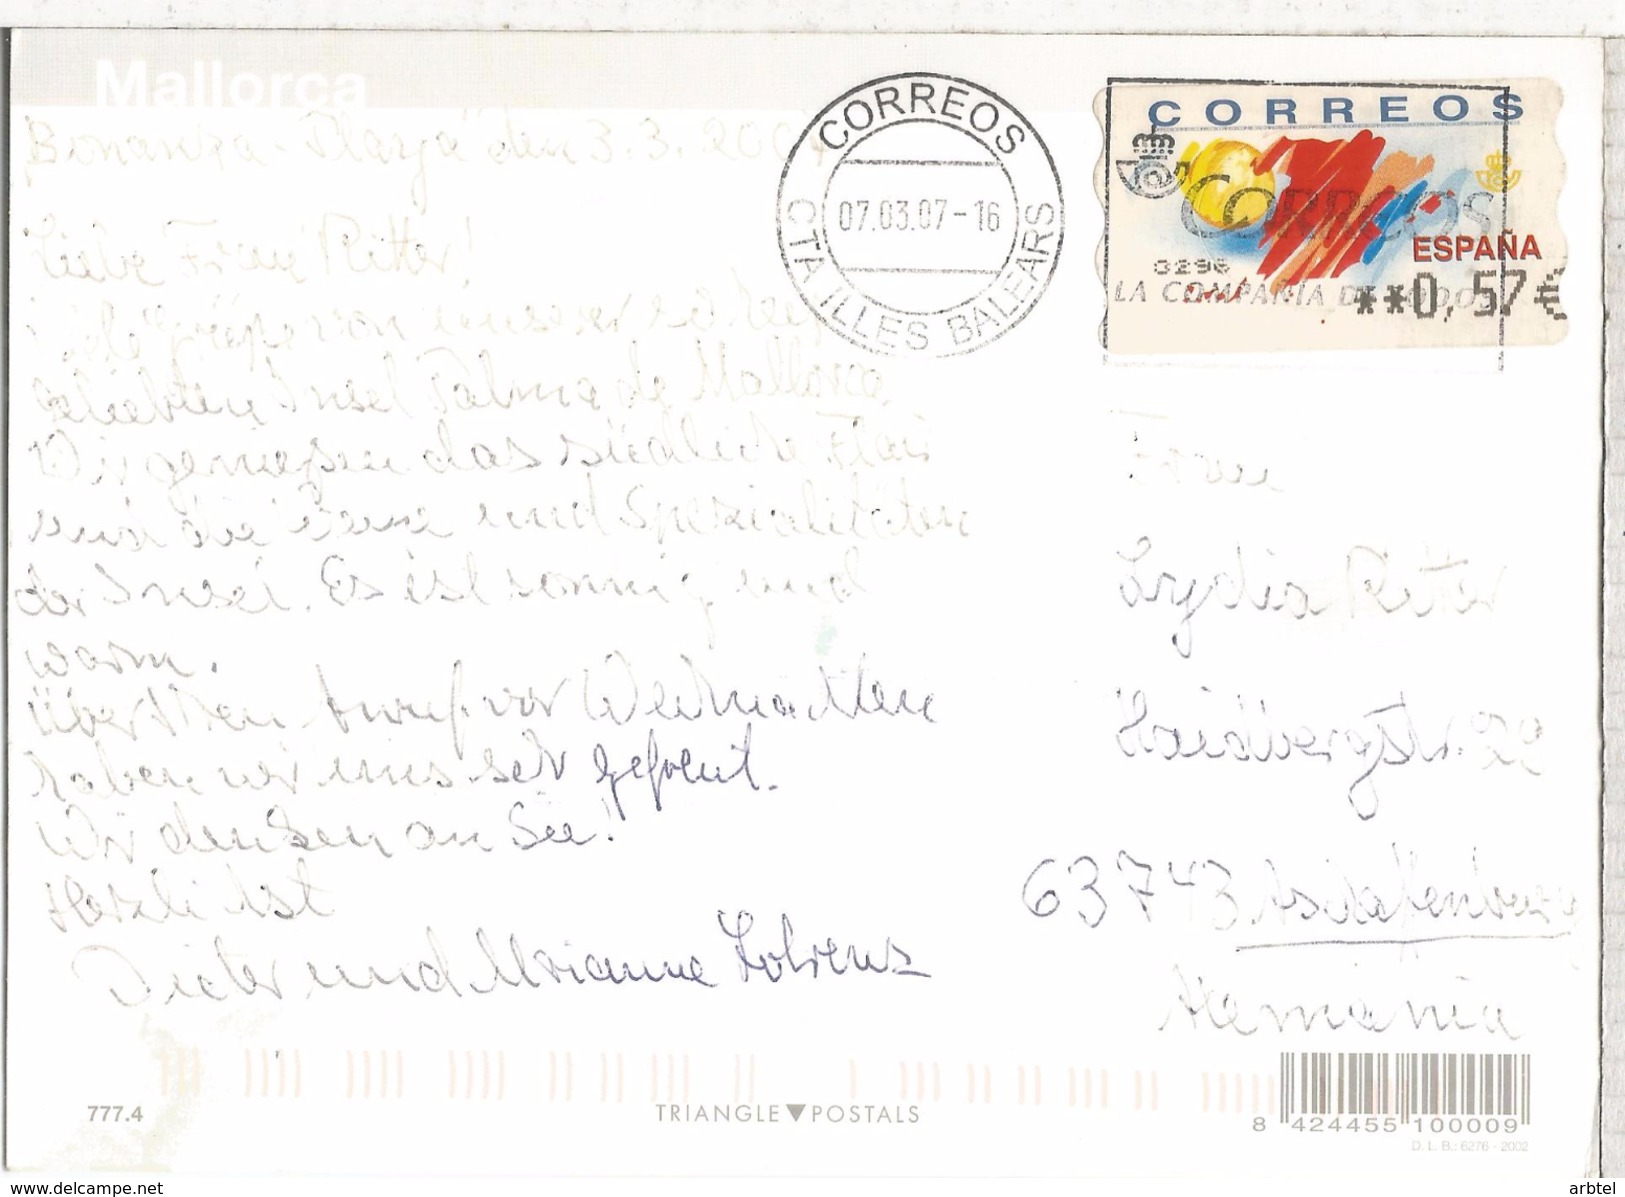 Mallorca
Bonanza - Playa den 3.3.2007
Liebe Frau Ritter!
viele Grüße von unserer schönen
geliebten Insel Palma de Mallorca
Wir genießen das südliche Flair
und die Weine und Spezialitäten
der Insel. Es ist sonnig und
warm.
Über Ihren Anruf vor Weihnachten
haben wir uns sehr gefreut.
Wir denken an Sie!
Herzlichst
Dieter und Marianne Lohrenz
CORREOS
07.03.07-16
CTA ILLES BALEARS
CORREOS
CORREOS
ESPAÑA
0296
LA COMPAÑIA DE TODOS
**0,57€
Frau
Lydia Ritter
Haidbergstr. 22
63743 Aschaffenburg
Alemania
777.4
TRIANGLE▼POSTALS
8 424455 100009
D. L. B.: 6276 - 2002
www.delcampe.net
arbtel